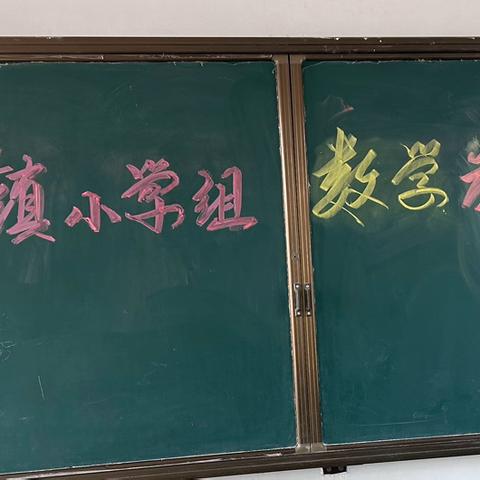 镇小学组 数学